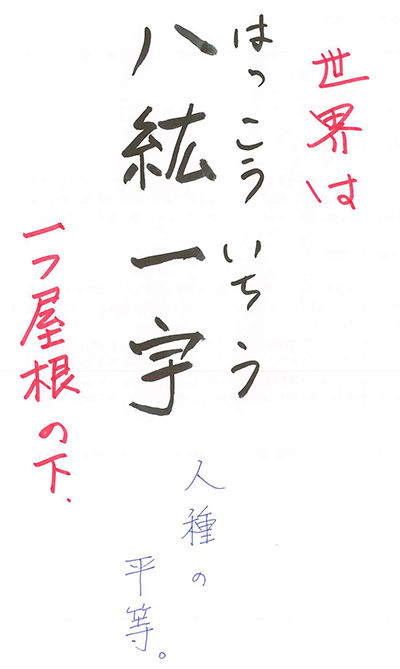 世界は
はっこういちう
八紘一宇
一つ屋根の下.
人種の
平等。